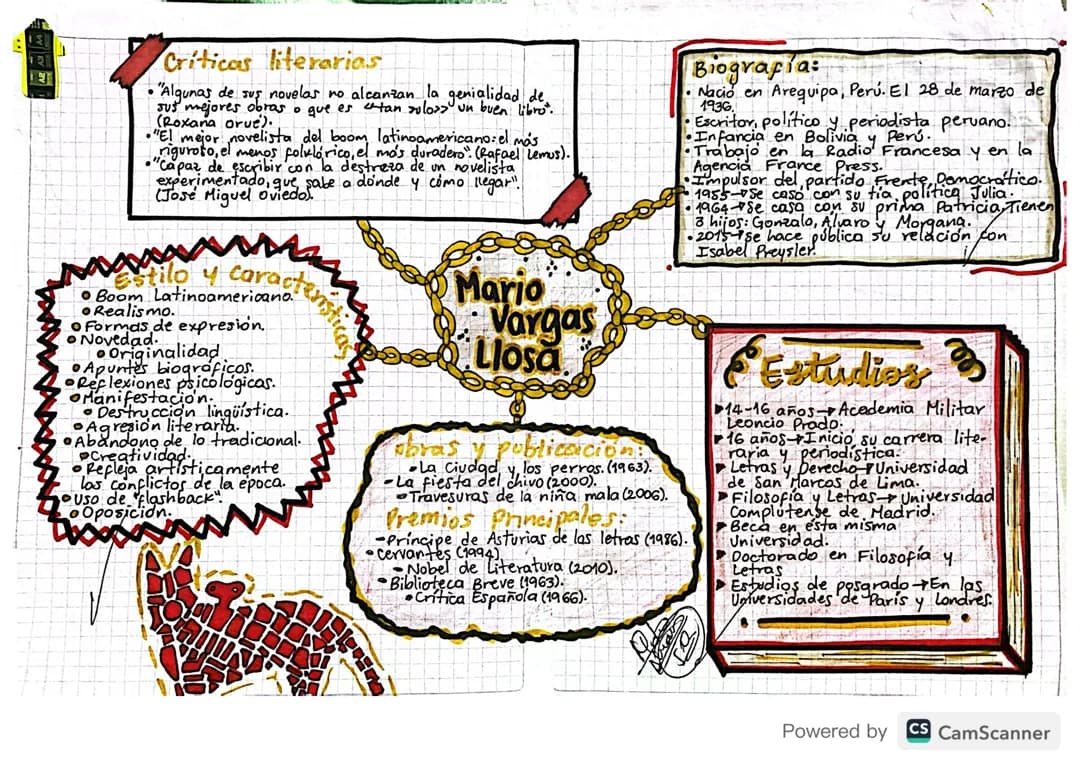 Críticas literarias
• "Algunas de sus novelas no alcanzan la genialidad de
sus mejores obras o que es «tan solo>> un buen libro".
(Roxana Orué).
• "El mejor novelista del boom latinoamericano: el más
riguroso, el menos folklórico, el más duradero". (Rafael Lemus).
• "Capaz de escribir con la destreza de un novelista
experimentado, que sabe a dónde y cómo llegar".
(José Miguel Oviedo).
Biografía:
• Nació en Arequipa, Perú. El 28 de marzo de
1936.
• Escritor, político y periodista peruano.
• Infancia en Bolivia y Perú.
• Trabajó en la Radio Francesa y en la
Agencia France Press.
• Impulsor del partido Frente Democrático.
• 1955→Se casó con su tía política Julia.
• 1964→Se casa con su prima Patricia. Tienen
3 hijos: Gonzalo, Álvaro y Morgana.
• 2015→Se hace pública su relación con
Isabel Preysler.
Mario
Vargas
Llosa
Estilo y características
• Boom Latinoamericano.
• Realismo.
• Formas de expresión.
• Novedad.
• Originalidad
• Apuntes biográficos.
• Reflexiones psicológicas.
• Manifestación.
• Destrucción lingüística.
• Agresión literaria.
• Abandono de lo tradicional.
• Creatividad.
• Refleja artísticamente
los conflictos de la época.
• Uso de "flashback".
• Oposición.
Obras y publicación:
• La ciudad y los perros. (1963).
• La fiesta del chivo (2000).
• Travesuras de la niña mala (2006).
Premios Principales:
• Príncipe de Asturias de las letras (1986).
• Cervantes (1994)
• Nobel de Literatura (2010).
• Biblioteca Breve (1963).
• Crítica Española (1966).
Estudios
▶ 14-16 años→Academia Militar
Leoncio Prado.
▶ 16 años→Inició su carrera lite-
raria y periodística.
▶ Letras y Derecho→Universidad
de San Marcos de Lima.
▶ Filosofía y Letras→Universidad
Complutense de Madrid.
▶ Beca en esta misma
Universidad.
▶ Doctorado en Filosofía y
Letras
▶ Estudios de posgrado→En las
Universidades de París y Londres.
Powered by CS CamScanner